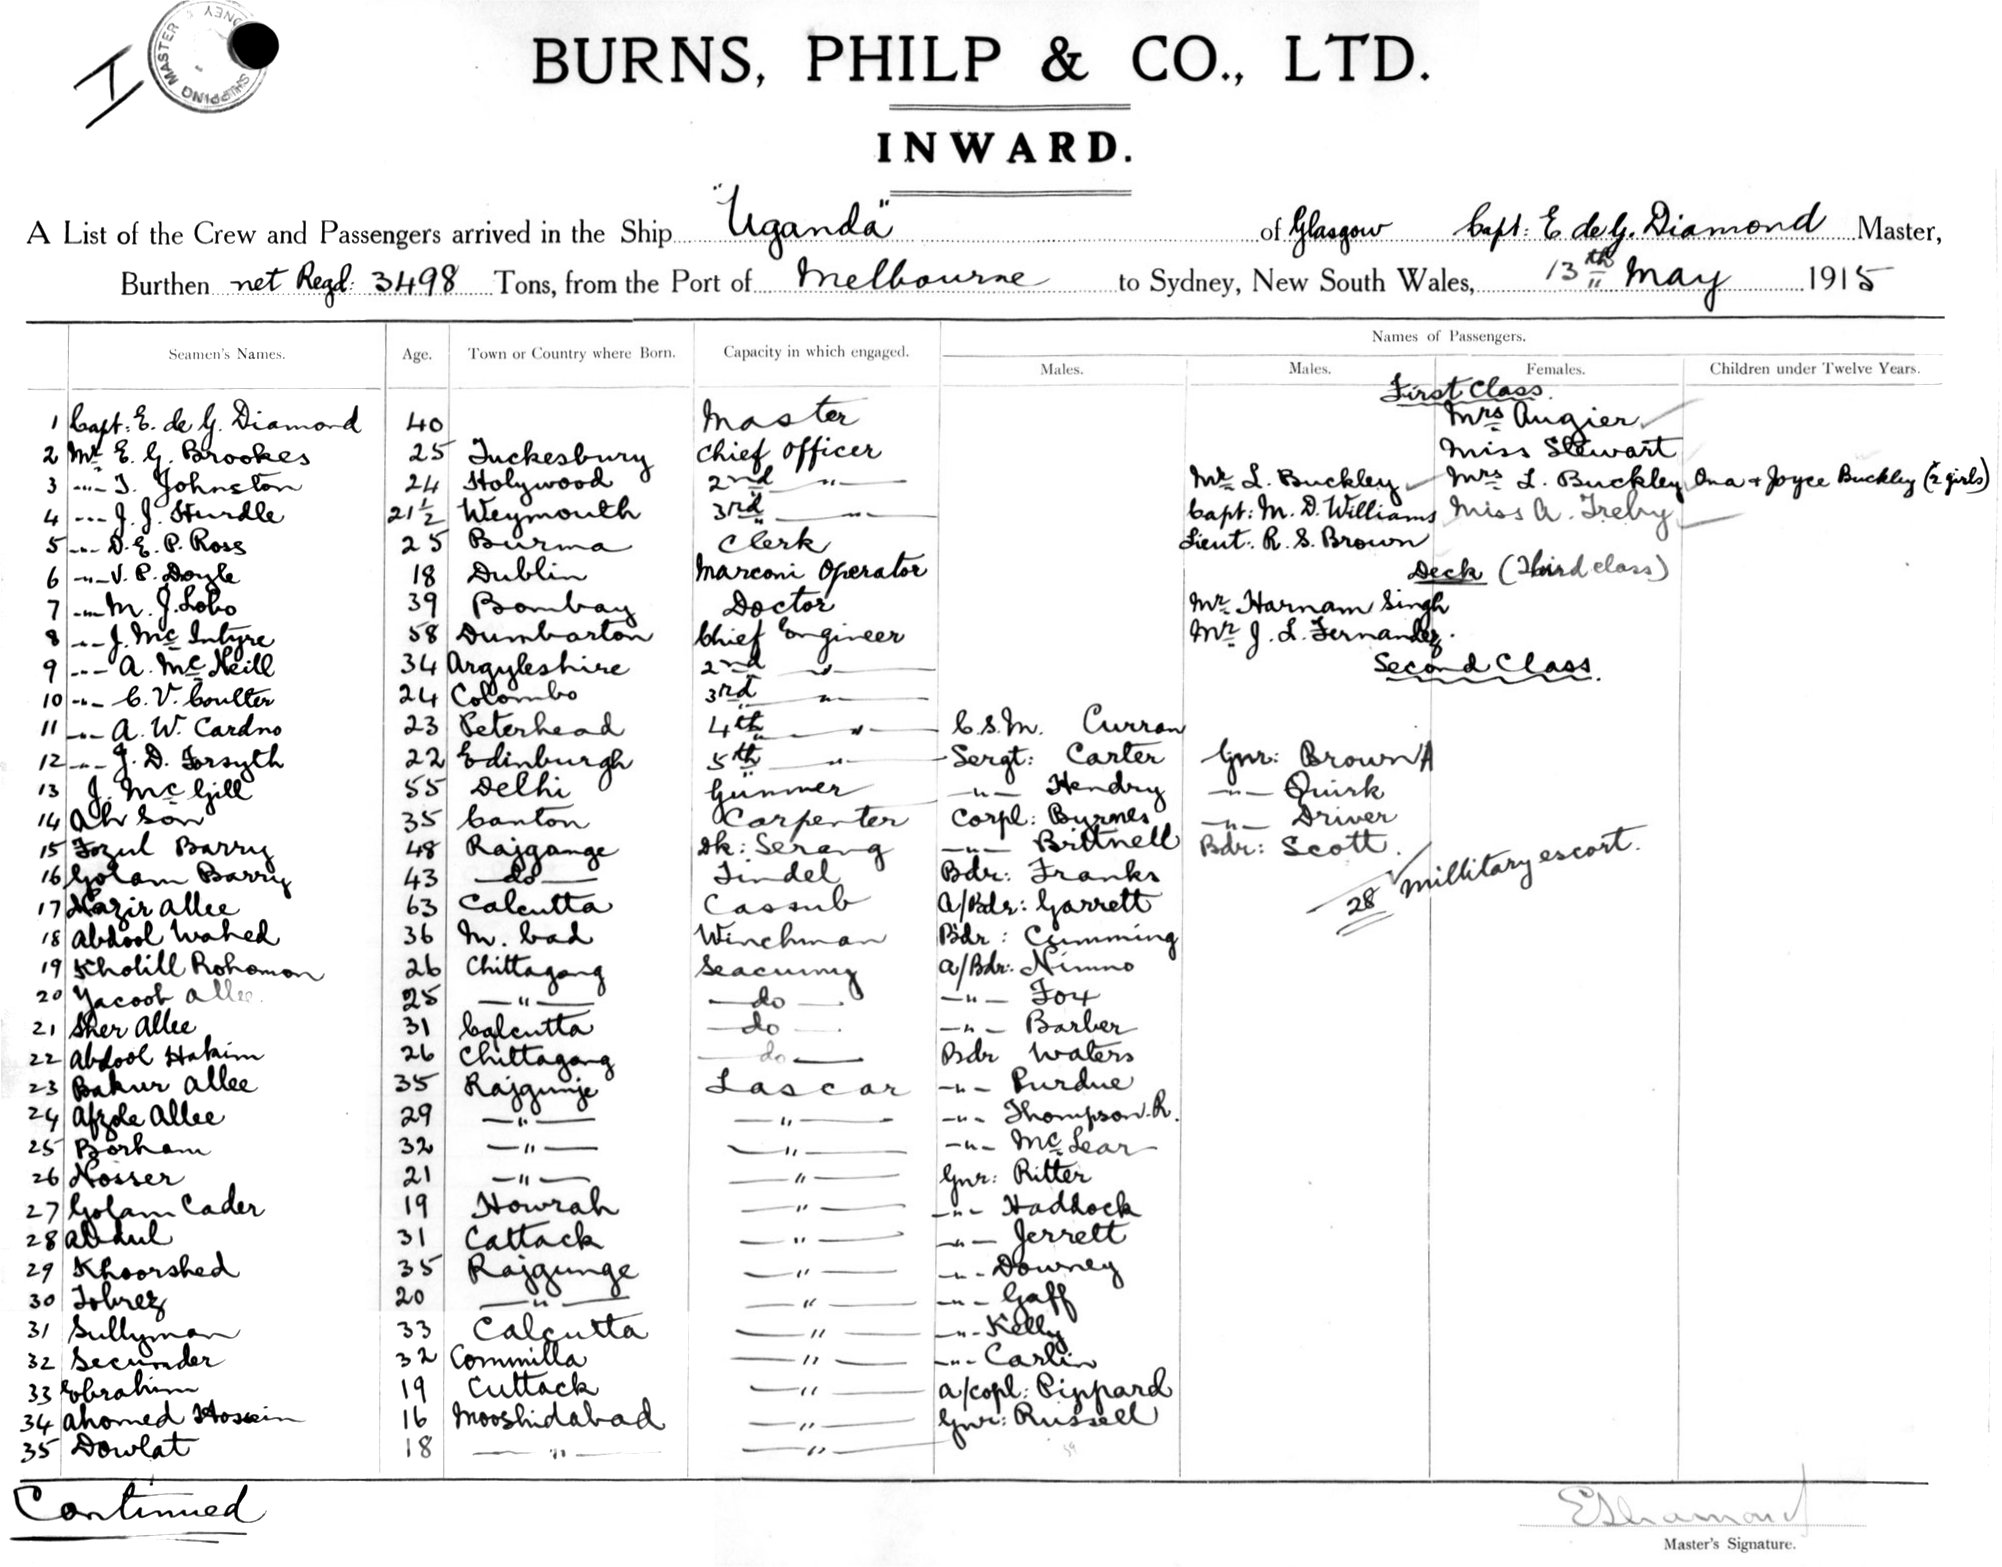 I
SHIPPING MASTER SYDNEY
BURNS, PHILP & CO., LTD.
INWARD.
A List of the Crew and Passengers arrived in the Ship "Uganda" of Glasgow Capt: E de G. Diamond Master,
Burthen net Regd: 3498 Tons, from the Port of Melbourne to Sydney, New South Wales, 13th May 1915
Names of Passengers.
Seamen's Names. Age. Town or Country where Born. Capacity in which engaged. Males. Males. Females. Children under Twelve Years.
First Class.
1 Capt: E. de G. Diamond 40 Master Mrs Augier
2 Mr E. G. Brookes 25 Tuckesbury Chief Officer Miss Stewart
3 -"- T. Johnston 24 Holywood 2nd -"- Mr L. Buckley Mrs L. Buckley Ona + Joyce Buckley (2 girls)
4 -"- J. J. Hurdle 21½ Weymouth 3rd -"- Capt: M. D. Williams Miss A. Treby
5 -"- D. E. P. Ross 25 Burma Clerk Lieut. R. S. Brown
6 -"- V. P. Doyle 18 Dublin Marconi Operator Deck (Third class)
7 -"- M. J. Lobo 39 Bombay Doctor Mr Harnam Singh
8 -"- J. McIntyre 58 Dumbarton Chief Engineer Mr J. L. Fernandez.
9 -"- A. McNeill 34 Argyleshire 2nd -"- Second Class.
10 -"- C. V. Coulter 24 Colombo 3rd -"-
11 -"- A. W. Cardno 23 Peterhead 4th -"- C.S.M. Curran
12 -"- J. D. Forsyth 22 Edinburgh 5th -"- Sergt: Carter Gnr: Brown A
13 J. McGill 55 Delhi Gunner -"- Hendry -"- Quirk
14 Ah Son 35 Canton Carpenter Corpl: Byrnes -"- Driver
15 Fozul Barry 48 Rajgange Dk: Serang -"- Brittnell Bdr: Scott.
16 Golam Barry 43 -do- Tindel Bdr: Franks 28 Millitary escort.
17 Nazir Allee 63 Calcutta Cassub A/Bdr: Garrett
18 Abdool Wahed 36 M. bad Winchman Bdr: Cumming
19 Kholill Rohoman 26 Chittagong Seacunny A/Bdr: Nimno
20 Yacoob Allee. 25 -"- -do- -"- Fox
21 Sher Allee 31 Calcutta -do- -"- Barber
22 Abdool Hakim 26 Chittagong -do- Bdr Waters
23 Bakur Allee 35 Rajgunje Lascar -"- Purdue
24 Afzole Allee 29 -"- -"- -"- Thompson. R.
25 Borham 32 -"- -"- -"- McLear
26 Nosser 21 -"- -"- Gnr: Ritter
27 Golam Cader 19 Howrah -"- -"- Haddock
28 Abdul 31 Cattack -"- -"- Jerrett
29 Khoorshed 35 Rajgunge -"- -"- Downey
30 Tobrez 20 -"- -"- -"- Gaff
31 Sullyman 33 Calcutta -"- -"- Kelly
32 Secunder 32 Commilla -"- -"- Carlin
33 Ebrahim 19 Cuttack -"- A/copl: Pippard
34 Ahomed Hossein 16 Mooshidabad -"- Gnr: Russell
35 Dowlat 18 -"- -"-
Continued
E Diamond
Master's Signature.